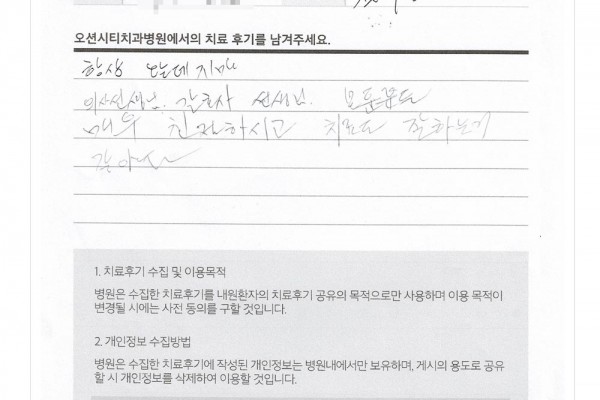 오션시티치과병원에서의 치료 후기를 남겨주세요.
항상 오는데지만
의사선생님. 간호사 선생님. 모든분들
매우 친절하시고 치료도 잘하는거
같아요
1. 치료후기 수집 및 이용목적
병원은 수집한 치료후기를 내원환자의 치료후기 공유의 목적으로만 사용하며 이용 목적이
변경될 시에는 사전 동의를 구할 것입니다.
2. 개인정보 수집방법
병원은 수집한 치료후기에 작성된 개인정보는 병원내에서만 보유하며, 게시의 용도로 공유
할 시 개인정보를 삭제하여 이용할 것입니다.